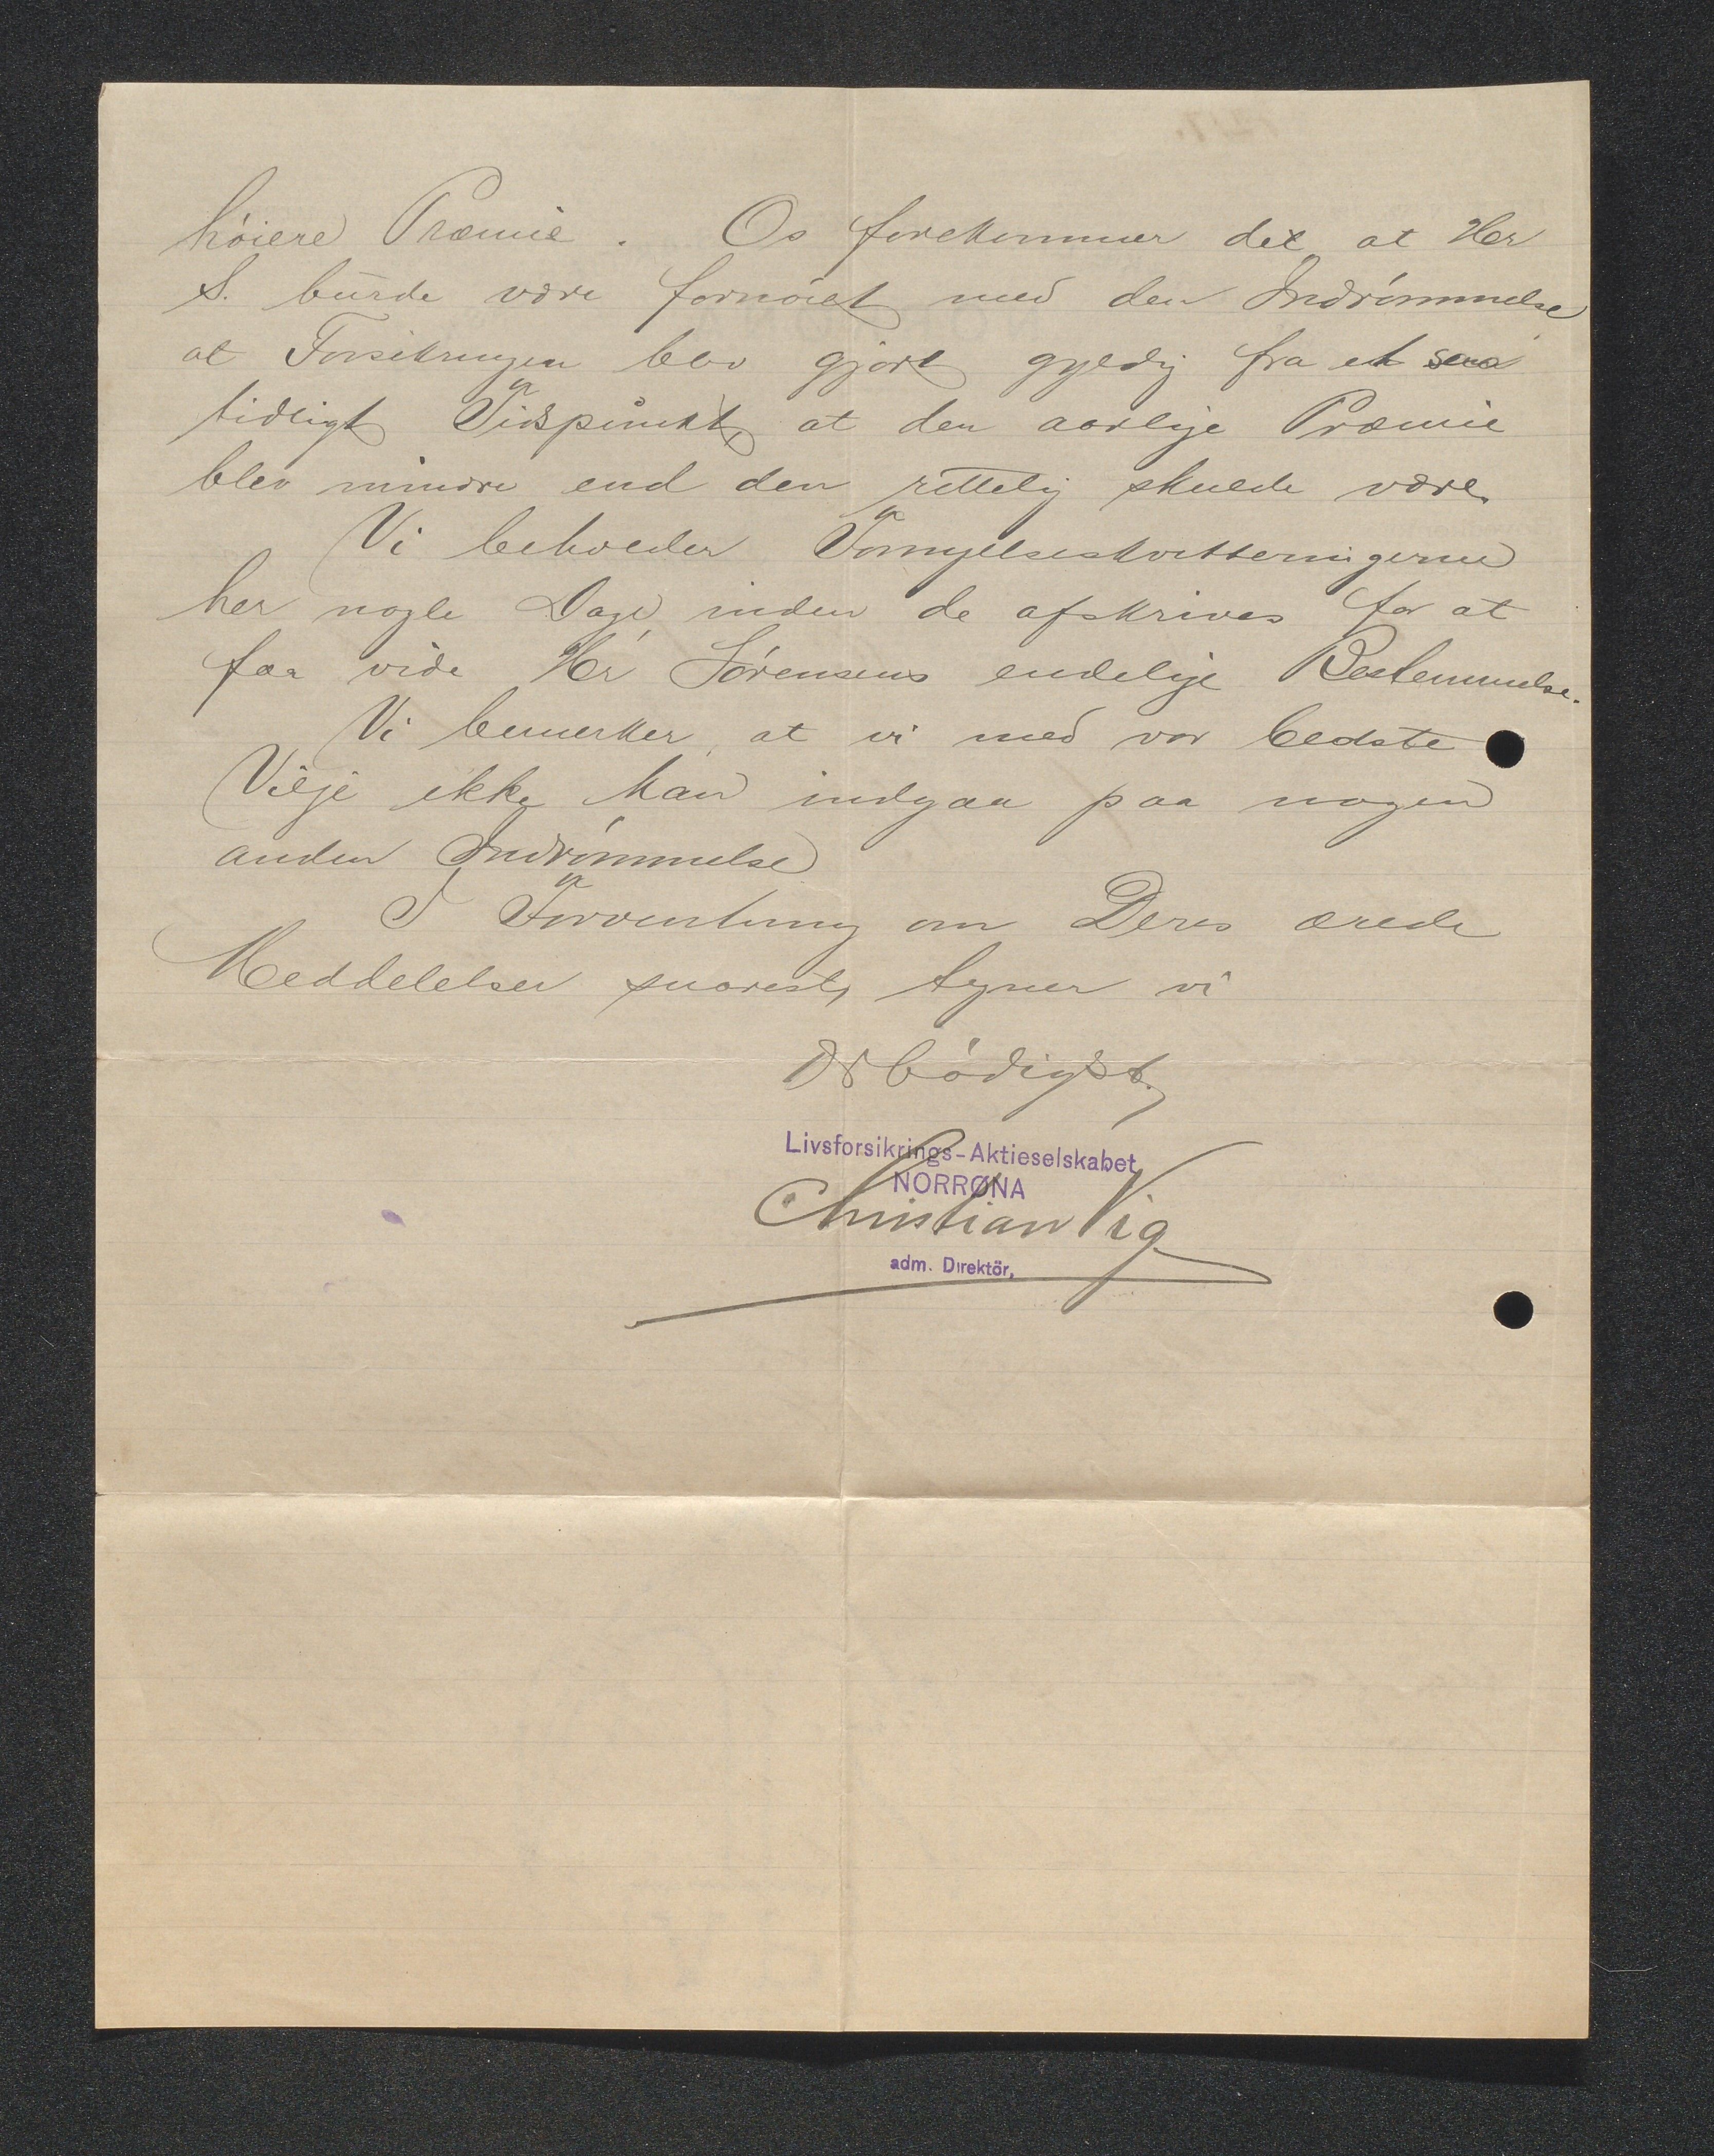 høiere Præmie. Os forekommer det, at Hr
S. burde være fornøiet med den Indrømmelse
at Forsikringen blev gjort gyldig fra et saa
tidligt Tidspunkt, at den aarlige Præmie
blev mindre end den rettelig skulde være.
Vi beholder Fornyelseskvitteringerne
her nogle Dage, inden de afskrives for at
faa vide Hr Sørensens endelige Bestemmelse.
Vi bemerker, at vi med vor bedste
Vilje ikke kan indgaa paa nogen
anden Indrømmelse
I Forventning om Deres ærede
Meddelelser snarest, tegner vi
Ærbødigst
Livsforsikrings-Aktieselskabet
NORRØNA
Christian Vig
adm. Direktör,